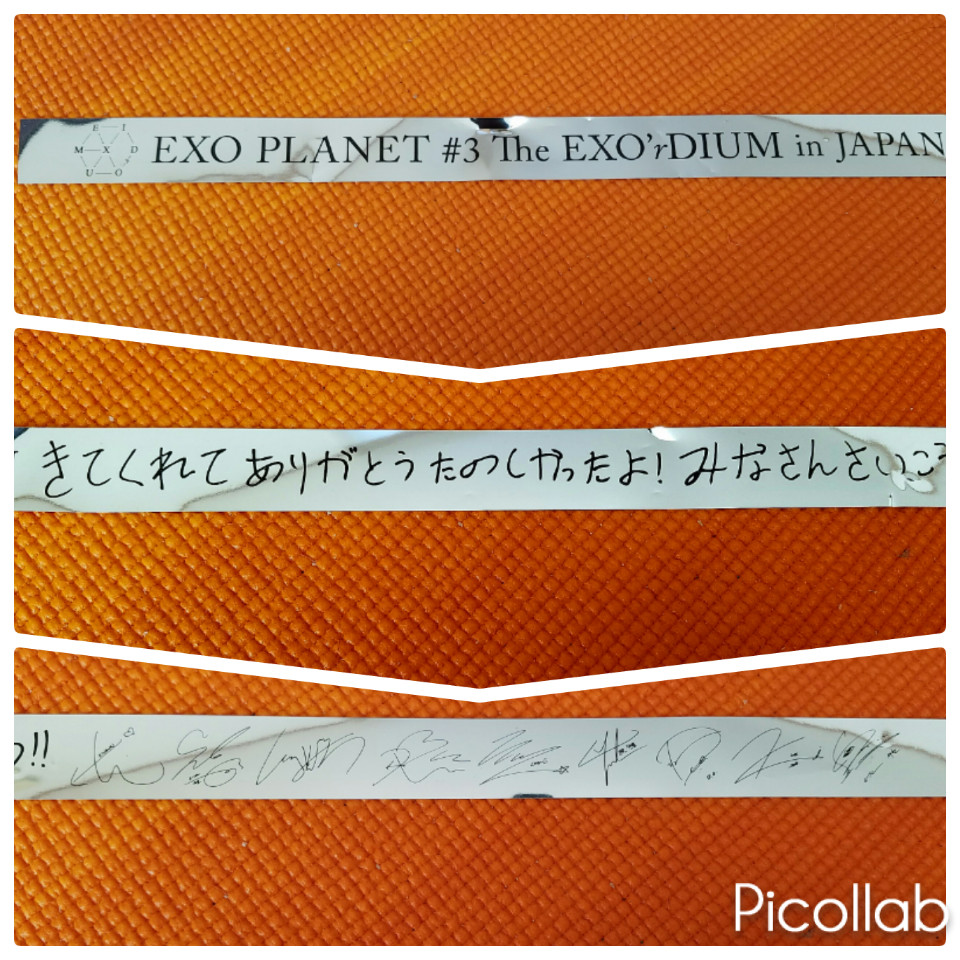 E I
M X D
U O
EXO PLANET #3 The EXO'rDIUM in JAPAN
きてくれてありがとう たのしかったよ! みなさんさいこう
!!
Picollab